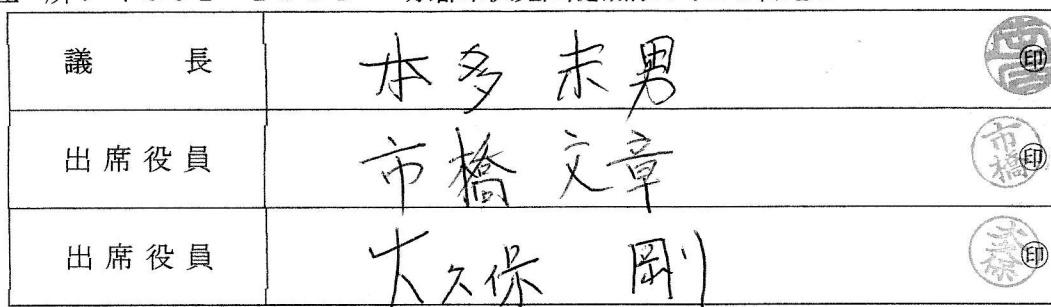 議長 本多 末男 ㊞
出席役員 市橋 文章 市橋 ㊞
出席役員 大久保 剛 大久保 ㊞